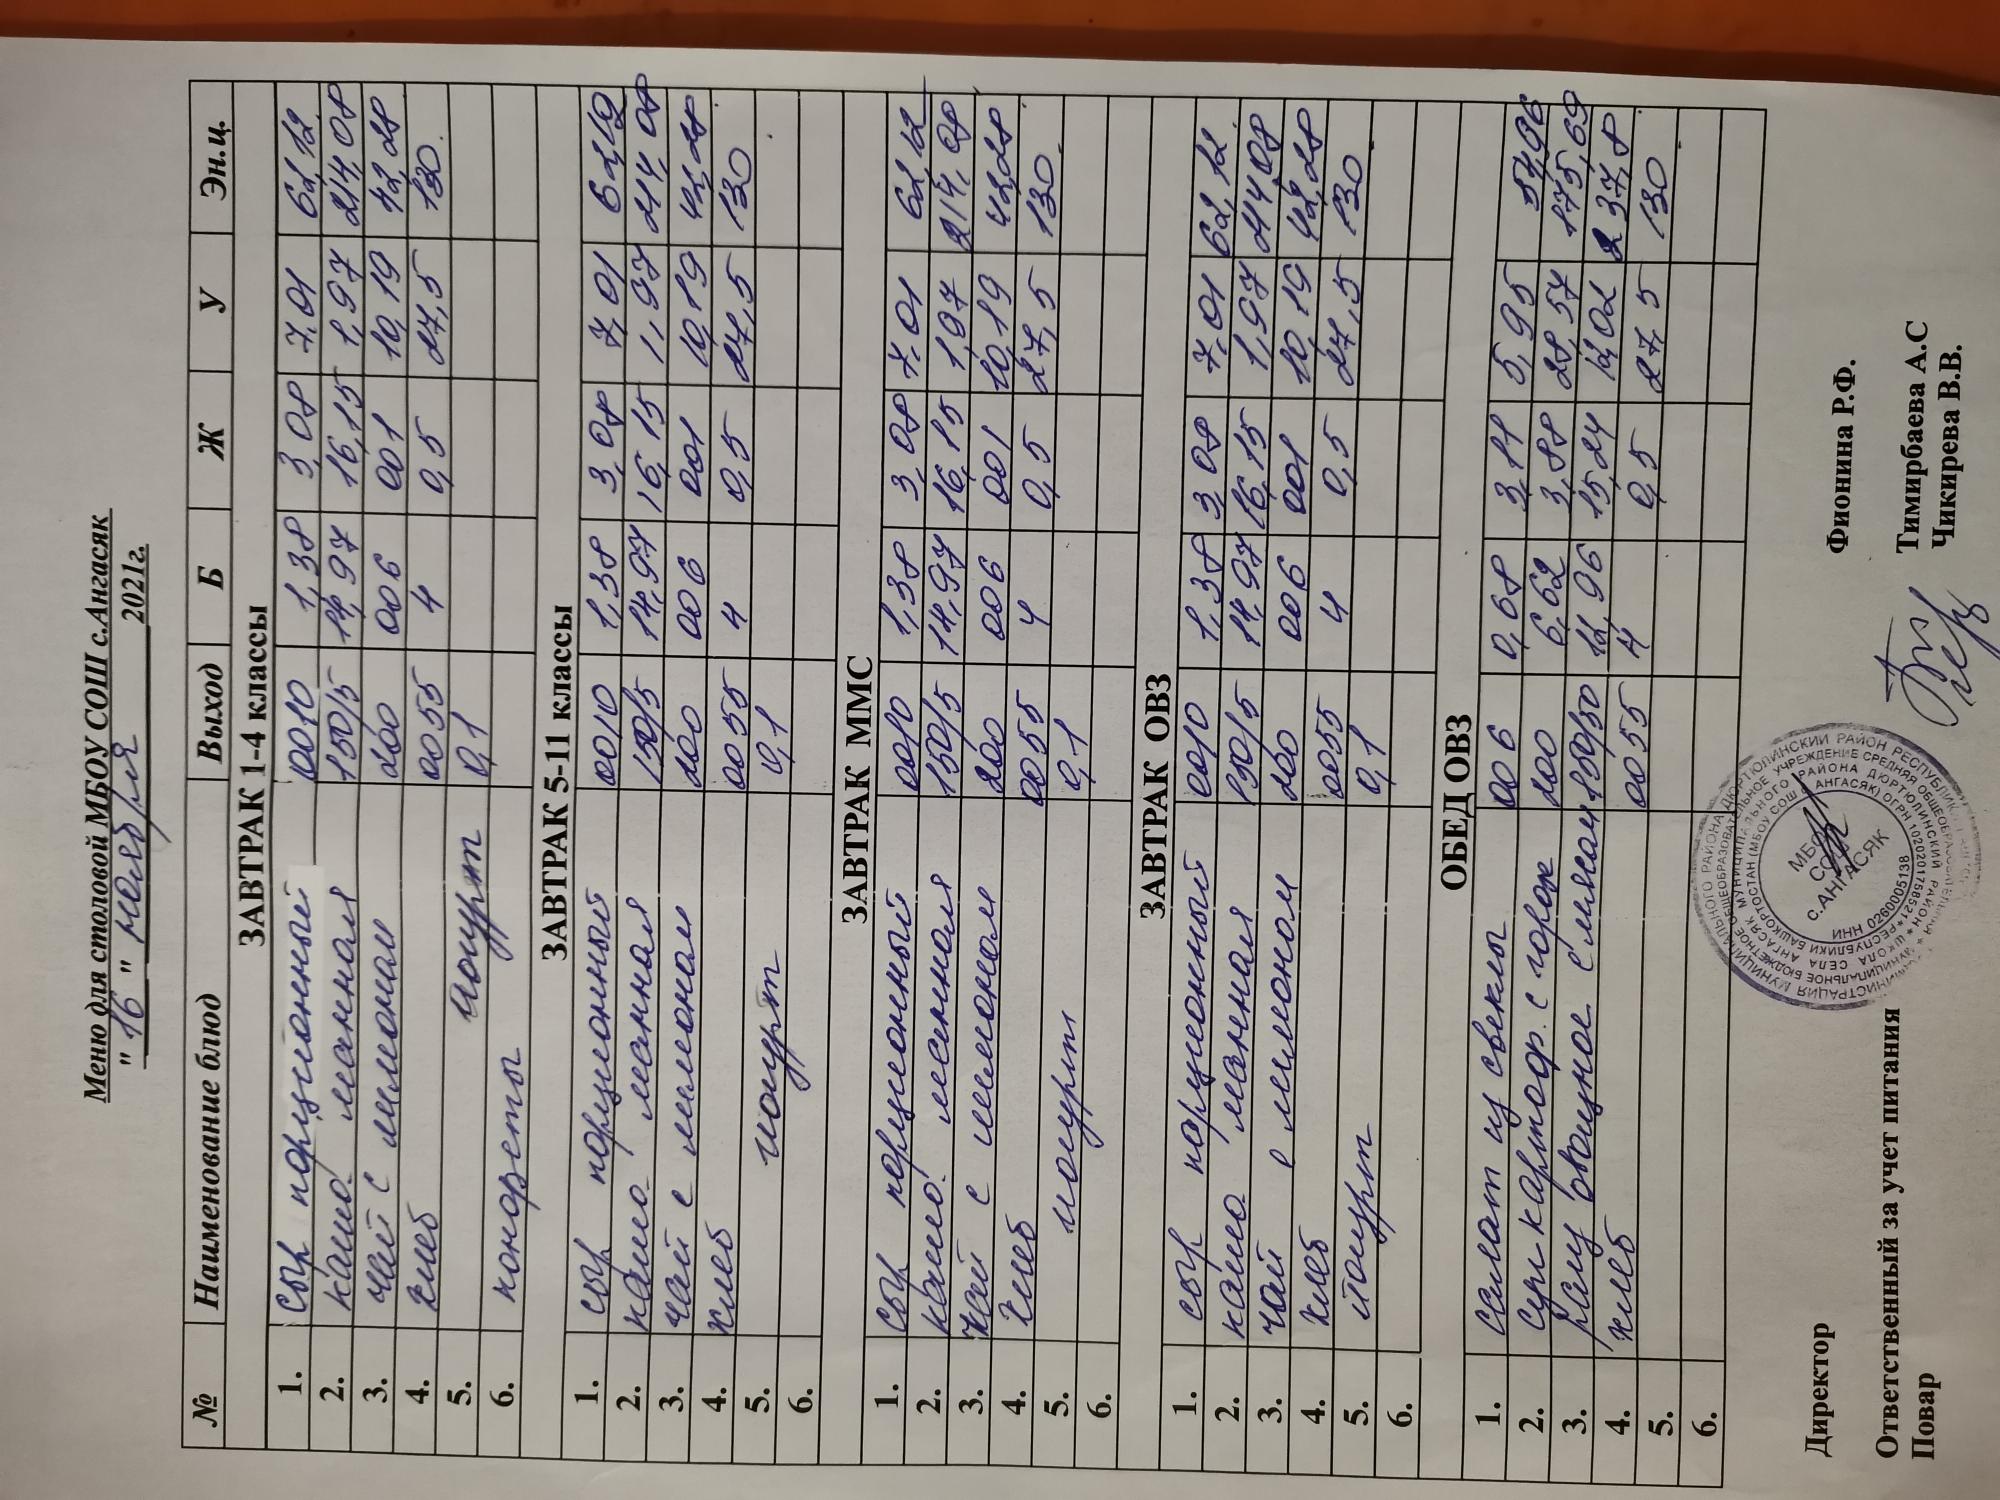 Меню для столовой МБОУ СОШ с.Ангасяк
" 16 " ноября 2021г.
№ Наименование блюд Выход Б Ж У Эн.ц.
ЗАВТРАК 1-4 классы
1. сыр порционный 0010 1,38 3,08 7,01 62,12
2. каша манная 150/5 14,97 16,15 1,97 214,08
3. чай с лимоном 200 006 001 10,19 42,28
4. хлеб 0055 4 0,5 27,5 130
5. йогурт 0,1
6. конфеты
ЗАВТРАК 5-11 классы
1. сыр порционный 0010 1,38 3,08 7,01 62,12
2. каша манная 150/5 14,97 16,15 1,97 214,08
3. чай с лимоном 200 006 001 10,19 42,28
4. хлеб 0055 4 0,5 27,5 130
5. йогурт 0,1
6.
ЗАВТРАК ММС
1. сыр порционный 0010 1,38 3,08 7,01 62,12
2. каша манная 150/5 14,97 16,15 1,97 214,08
3. чай с лимоном 200 006 001 10,19 42,28
4. хлеб 0055 4 0,5 27,5 130
5. йогурт 0,1
6.
ЗАВТРАК ОВЗ
1. сыр порционный 0010 1,38 3,08 7,01 62,12
2. каша манная 150/5 14,97 16,15 1,97 214,08
3. чай с лимоном 200 006 001 10,19 42,28
4. хлеб 0055 4 0,5 27,5 130
5. йогурт 0,1
6.
ОБЕД ОВЗ
1. салат из свеклы 006 0,68 3,11 5,95 54,96
2. суп картоф. с горох 200 6,62 3,88 28,57 175,69
3. рагу овощное с мясом 150/50 12,96 15,24 12,02 237,8
4. хлеб 0055 4 0,5 27,5 130
5.
6.
Директор Фионина Р.Ф.
Ответственный за учет питания Тимирбаева А.С
Повар Чикирева В.В.
МБОУ
СОШ
с.АНГАСЯК
ИНН 0260005138